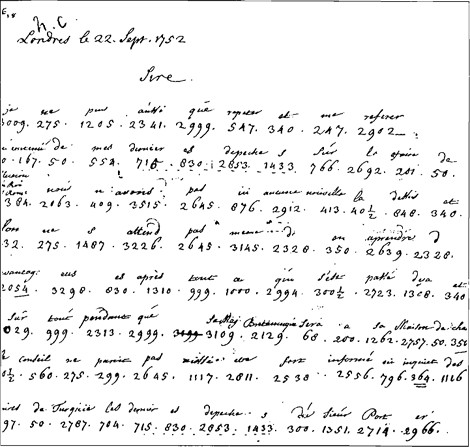 h. C.
Londres le 22. Sept. 1752
Sire.
je ne puis que repeter et me referer
3009. 275. 1205. 2341. 2999. 547. 340. 247. 2902
mes dernier es depeche s sur la de
0.167. 50. 554. 715. 830. 2853. 1433. 766. 2692. 201. 50.
nous n'avons pas ici aucune nouvelle la dessus et
384. 2063. 409. 3515. 2645. 876. 2912. 413. 40½. 848. 340.
lon ne s attend pas meme d en aprendre d
32. 275. 1487. 3226. 2645. 3145. 2328. 350. 2639. 2328.
avantag. eus es après tout ce qui s'est passé et
2054. 3298. 830. 1310. 999. 1000. 2994. 300½. 2723. 1308. 340
sur tout pendant que sa Maj. Britannique sera a sa Maison de cha
029. 999. 2313. 2999. 3109. 2129. 68. 200. 1262. 2757. 50. 356
conseil ne paroit pas fort informé ni inquiet des
0½. 560. 275. 299. 2645. 1117. 2811. 2538. 2556. 796. 364. 1116
ires de Turquie les dernier es depeche s du Sieur Port er
97. 50. 2787. 704. 715. 830. 2853. 1433. 300. 1351. 2714. 2966.